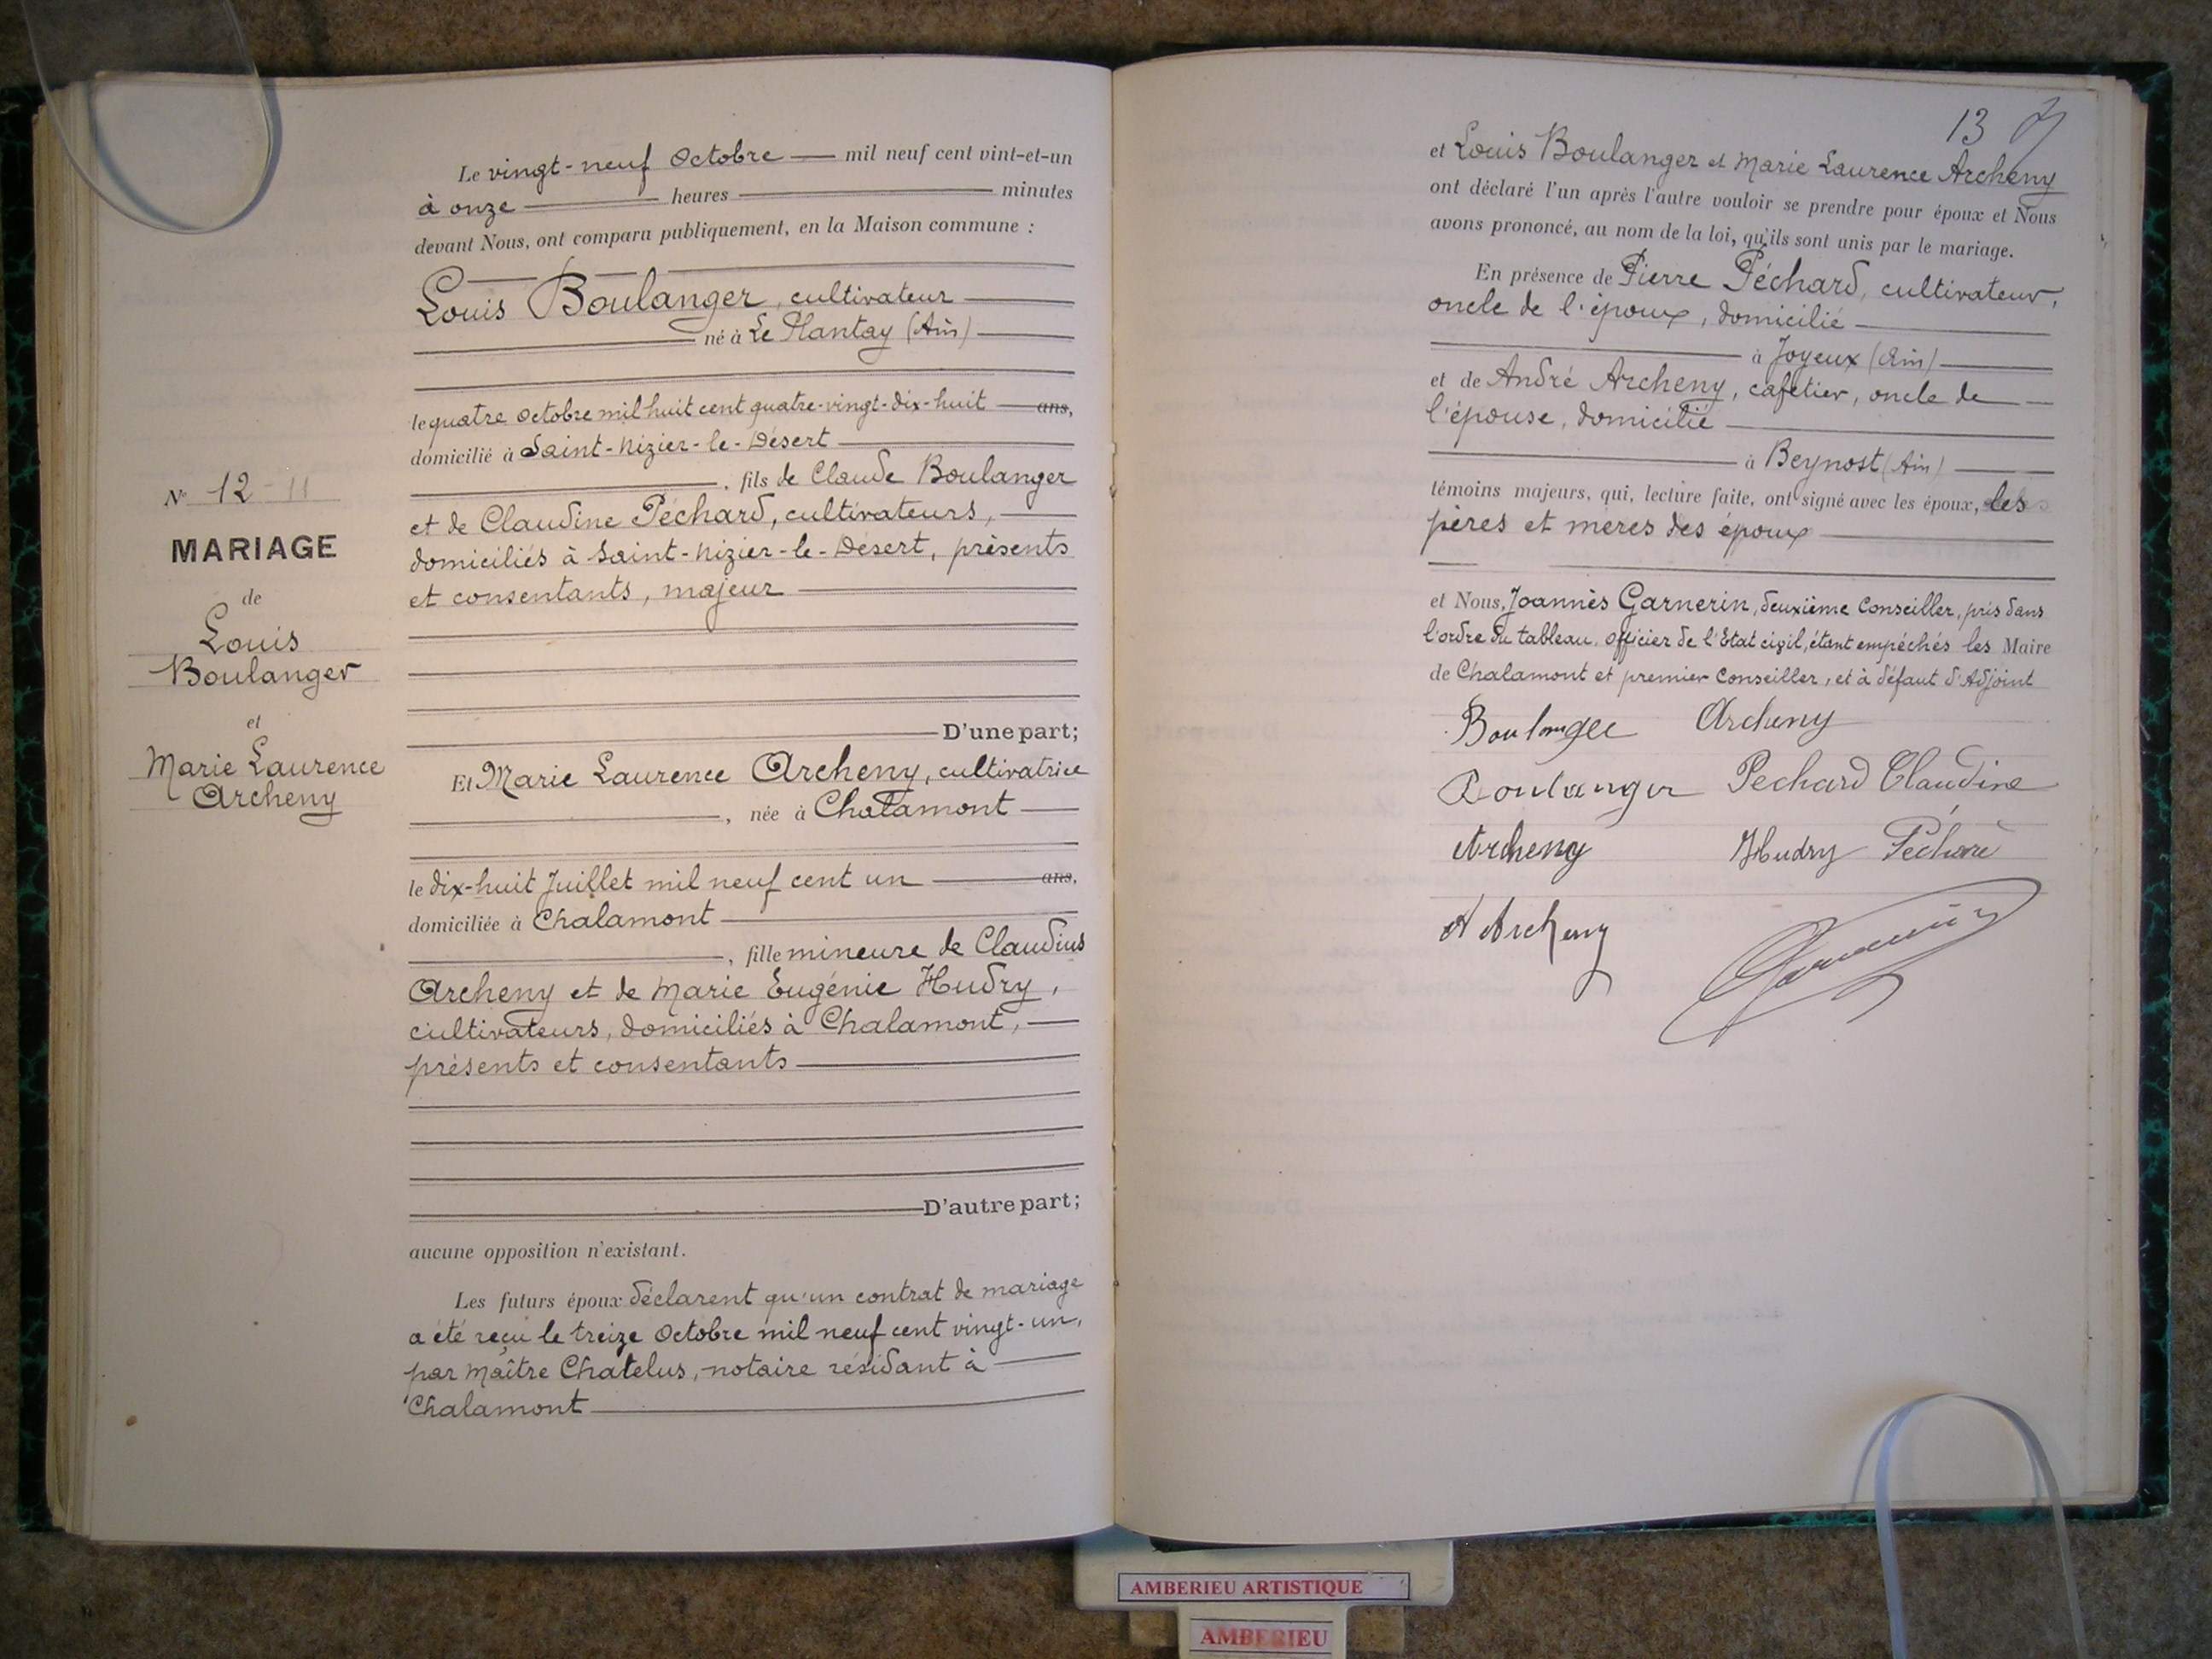 Le vingt-neuf Octobre mil neuf cent vint-et-un
à onze heures minutes
devant Nous, ont comparu publiquement, en la Maison commune :
Louis Boulanger, cultivateur
né à Le Plantay (Ain)
le quatre Octobre mil huit cent quatre-vingt-dix-huit ans,
domicilié à Saint-Nizier-le-Désert
, fils de Claude Boulanger
et de Claudine Péchard, cultivateurs,
domiciliés à Saint-Nizier-le-Désert, présents
et consentants, majeur
D'une part;
Et Marie Laurence Archeny, cultivatrice
, née à Chalamont
le dix-huit Juillet mil neuf cent un ans,
domiciliée à Chalamont
, fille mineure de Claudius
Archeny et de Marie Eugénie Hudry,
cultivateurs, domiciliés à Chalamont,
présents et consentants
D'autre part;
aucune opposition n'existant.
Les futurs époux déclarent qu'un contrat de mariage
a été reçu le treize Octobre mil neuf cent vingt-un,
par Maître Chatelus, notaire résidant à
Chalamont
N° 12 - 11
MARIAGE
de
Louis
Boulanger
et
Marie Laurence
Archeny
13
et Louis Boulanger et Marie Laurence Archeny
ont déclaré l'un après l'autre vouloir se prendre pour époux et Nous
avons prononcé, au nom de la loi, qu'ils sont unis par le mariage.
En présence de Pierre Péchard, cultivateur,
oncle de l'époux, domicilié
à Joyeux (Ain)
et de André Archeny, cafetier, oncle de
l'épouse, domicilié
à Beynost (Ain)
témoins majeurs, qui, lecture faite, ont signé avec les époux, les
pères et mères des époux
et Nous, Joannès Garnerin, deuxième Conseiller, pris dans
l'ordre du tableau, Officier de l'Etat civil, étant empéchés les Maire
de Chalamont et premier Conseiller, et à défaut d'Adjoint
Boulanger Archeny
Boulanger Pechard Claudine
Archeny Hudry Péchard
A Archeny
Garnerin
AMBERIEU ARTISTIQUE
AMBERIEU